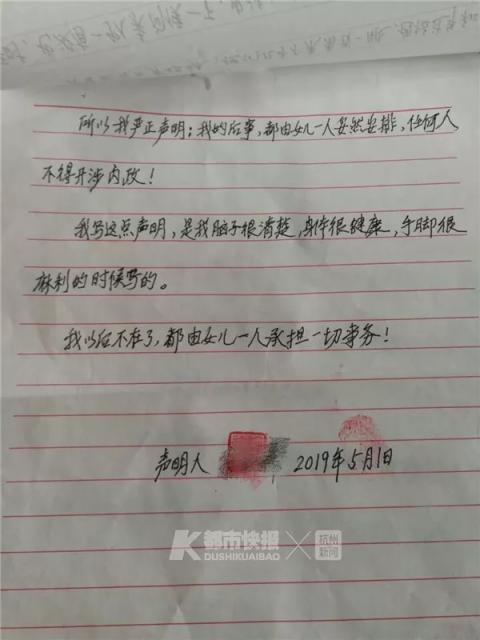 所以我严正声明：我的后事，都由女儿一人妥然安排，任何人
不得干涉内政！
我写这点声明，是我脑子很清楚，身体很健康，手脚很
麻利的时候写的。
我以后不在了，都由女儿一人承担一切事务！
声明人 2019年5月1日
都市快报
DUSHIKUAIBAO
杭州
新闻